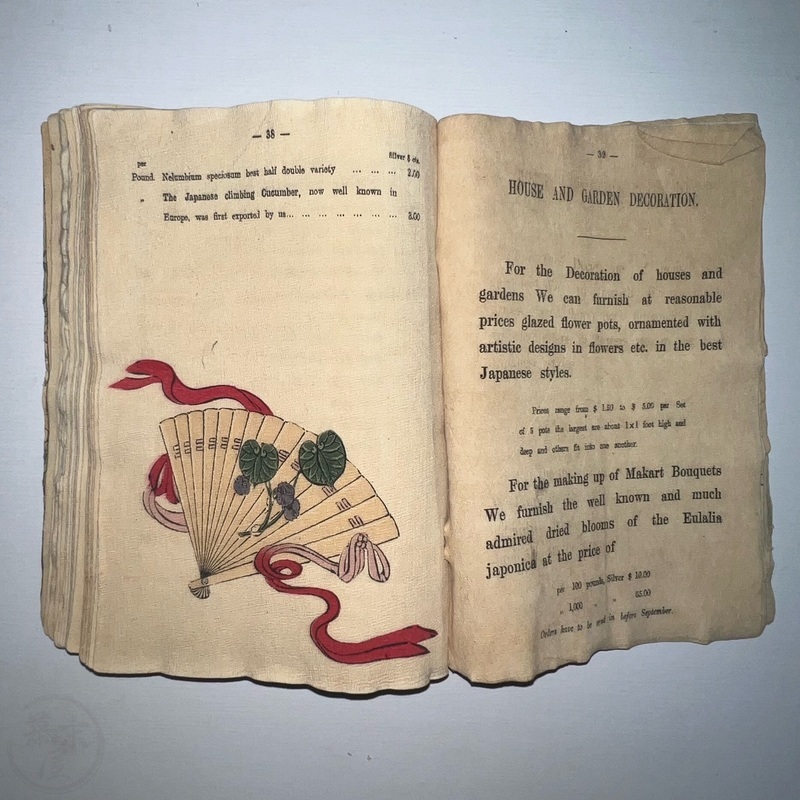 — 38 —
Silver $ cts.
per
Pound. Nelumbium speciosum best half double variety ... ... ... 2.00
„ The Japanese climbing Cucumber, now well known in
Europe, was first exported by us... ... ... ... ... ... ... 3.00
— 39 —
HOUSE AND GARDEN DECORATION.
For the Decoration of houses and
gardens We can furnish at reasonable
prices glazed flower pots, ornamented with
artistic designs in flowers etc. in the best
Japanese styles.
Prices range from $ 1.20 to $ 5.00 per Set
of 5 pots the largest are about 1x1 foot high and
deep and others fit into one another.
For the making up of Makart Bouquets
We furnish the well known and much
admired dried blooms of the Eulalia
japonica at the price of
per 100 pounds, Silver $ 10.00
„ 1,000 „ „ 85.00
Orders have to be send in before September.